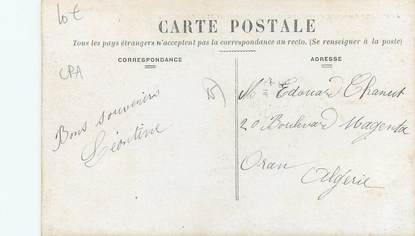 10€
CARTE POSTALE
Tous les pays étrangers n'acceptent pas la correspondance au recto. (Se renseigner à la poste)
CORRESPONDANCE
ADRESSE
CPA
Bons souvenirs
Léontine
Mr Edouard Chanut
20 Boulevard Magenta
Oran
Algérie